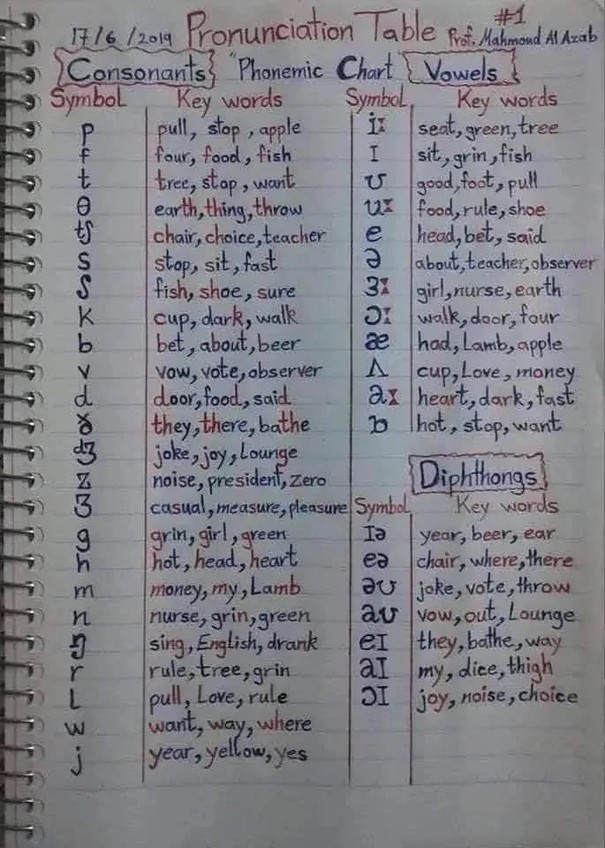 17/6/2019 Pronunciation Table #1
Prof. Mahmoud Al Azab
Consonants "Phonemic Chart" Vowels
Symbol Key words
p pull, stop, apple
f four, food, fish
t tree, stop, want
θ earth, thing, throw
tʃ chair, choice, teacher
s stop, sit, fast
ʃ fish, shoe, sure
k cup, dark, walk
b bet, about, beer
v vow, vote, observer
d door, food, said
ð they, there, bathe
dʒ joke, joy, Lounge
z noise, president, zero
ʒ casual, measure, pleasure
g grin, girl, green
h hot, head, heart
m money, my, Lamb
n nurse, grin, green
ŋ sing, English, drank
r rule, tree, grin
L pull, Love, rule
w want, way, where
j year, yellow, yes
Symbol Key words
iː seat, green, tree
I sit, grin, fish
ʊ good, foot, pull
uː food, rule, shoe
e head, bet, said
ə about, teacher, observer
ɜː girl, nurse, earth
ɔː walk, door, four
æ had, Lamb, apple
ʌ cup, Love, money
ɑː heart, dark, fast
ɒ hot, stop, want
Diphthongs
Symbol Key words
Iə year, beer, ear
eə chair, where, there
əʊ joke, vote, throw
aʊ vow, out, Lounge
eI they, bathe, way
aI my, dice, thigh
ɔI joy, noise, choice